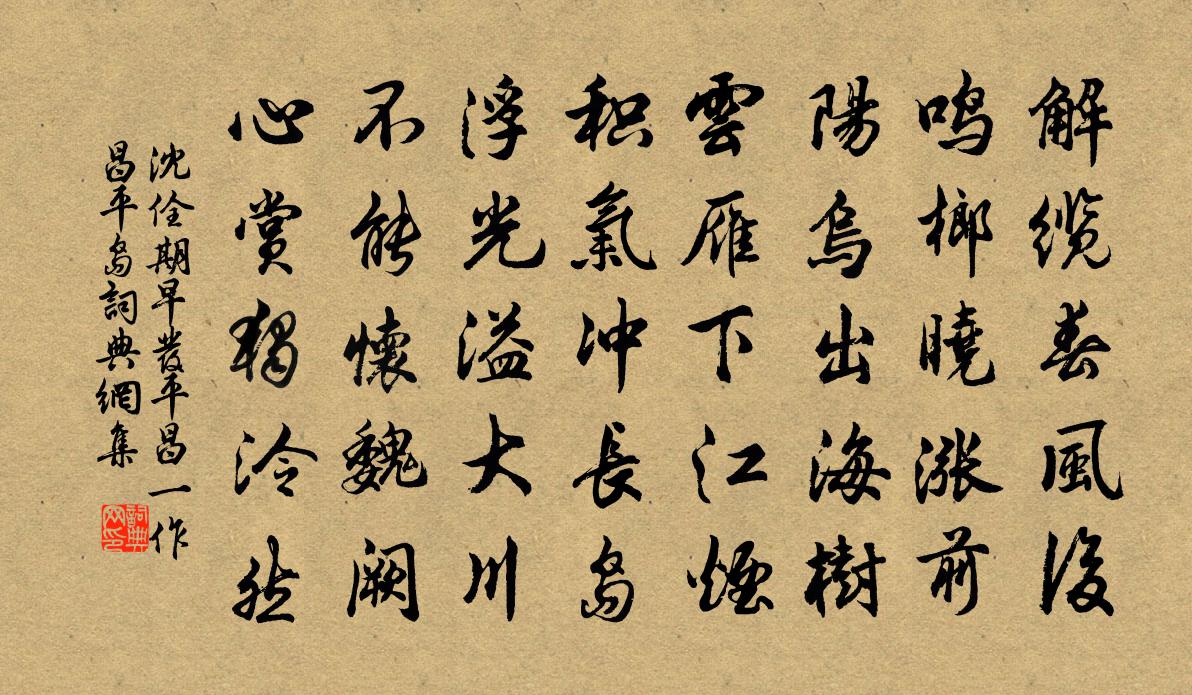 解缆春風後
鸣榔曉漲前
陽烏出海樹
雲雁下江煙
积氣冲長島
浮光溢大川
不能懷魏阙
心賞獨泠然
沈佺期早發平昌 一作
昌平島詞典網集
詞典网印